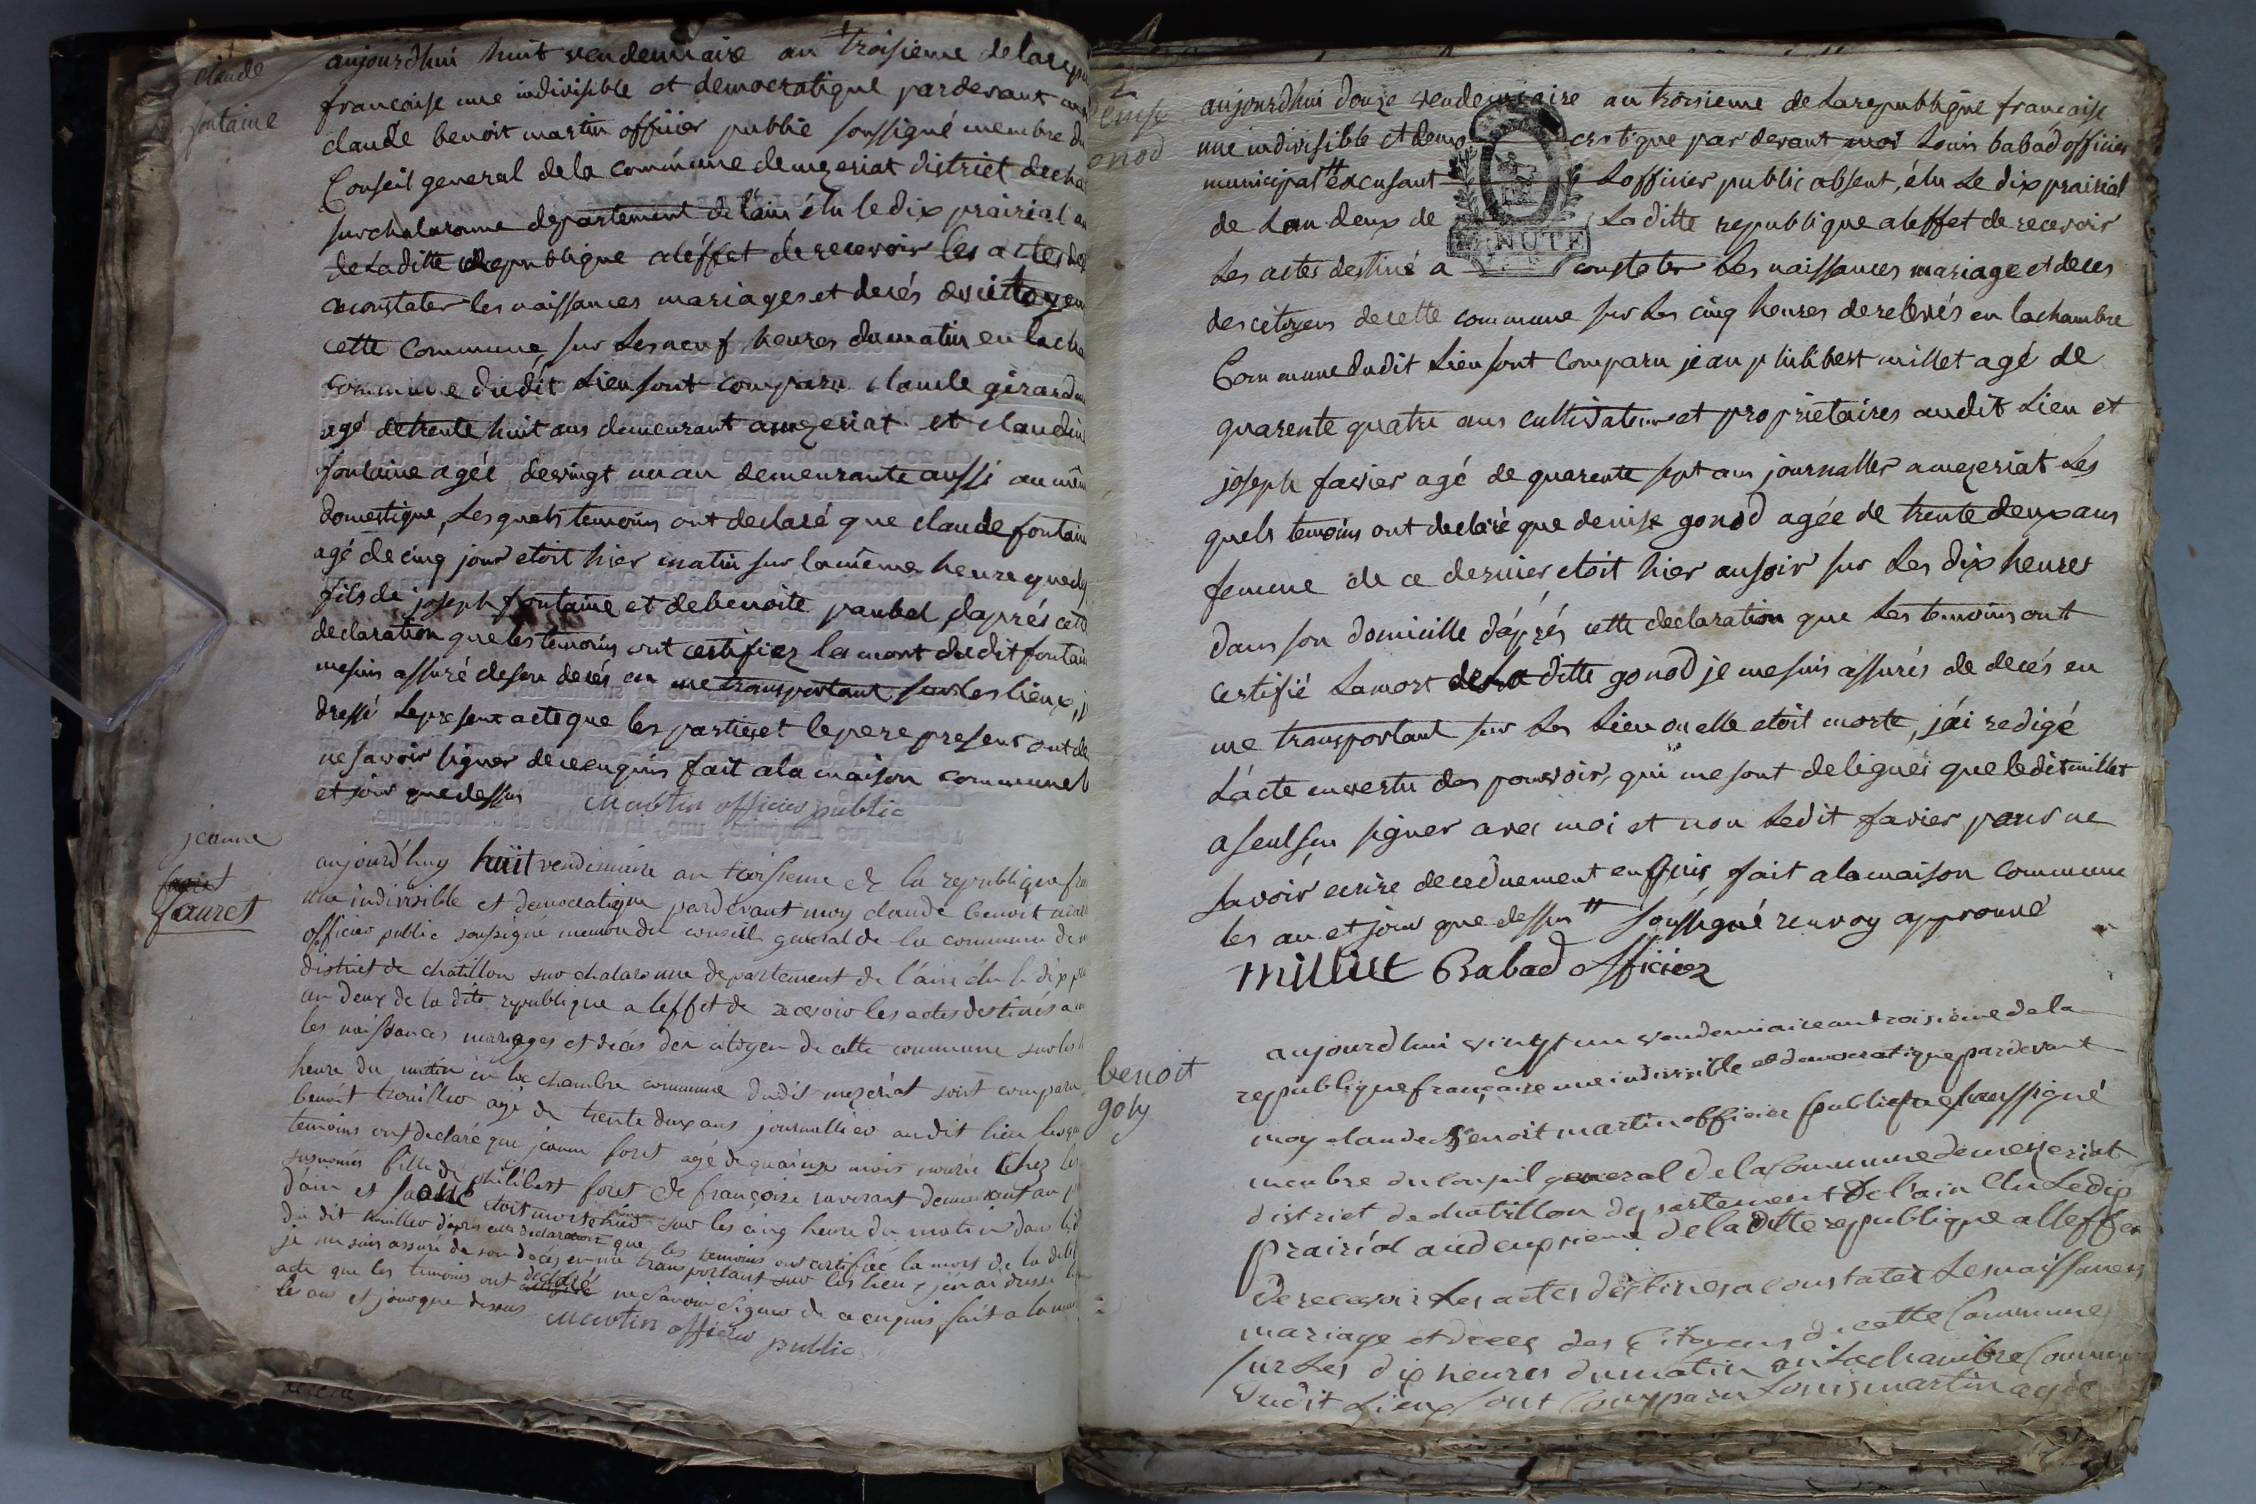 claude
fontaine
aujourdhui huit vendemiaire an troisieme de la repu
francaise une indivisible et democratique pardevant
claude benoit martin officier public soussigné membre du
Conseil general de la commune de mezeriat district de cha
sur chalaronne departement de l'ain élu le dix prairial an
de Laditte republique a léffet de recevoir les actes des
a constater les naissances mariages et decés des citoyen
cette commune sur Les neuf heures du matin en la cha
commune du dit Lieu sont comparu claude girard
agé de trente huit ans demeurant a mezeriat et claudin
fontaine agée de vingt un an demeurante aussi au mêm
domestique, Lesquels temoins ont declaré que claude fontain
agé de cinq jour etoit hier matin sur la même heure que
fils de joseph fontaine et de benoite paubel, d'aprés cett
declaration que les temoins ont certifiez la mort du dit fontain
me suis assuré de son decés en me transportant sur les lieux, j
dressé Le present acte que les parties et le pere present ont de
ne savoir signer de ce enquis fait a la maison commune l
et jour que dessus Martin officier public
jeanne
fauret
aujourd'huy huit vendemiaire an troisieme de la republique fra
une indivisible et democratique pardevant moy claude benoit mar
officier public soussigné membre du conseil general de la commune de m
district de chatillon sur chalaronne departement de l'ain élu le dix pra
an deux de la dite republique a leffet de recevoir les actes destinés a co
les naissances mariages et décés des citoyen de cette commune sur les h
heure du matin en la chambre commune dudit mezeriat sont comparu
benoit trouillier agé de trente deux ans journallier audit lieu lesqu
temoins ont declaré que jeanne foret agé de quainze mois nourie chez les
susnomés fille de philibert foret de françoise
d'ain et etoit morte hier sur les cinq heure du matin dans le d
du dit trouillier d'apres cette declaration que les temoins ont certifiée la mort de la dite f
je me suis assuré de son decés en me transportant sur les lieux j'en ai dressé l
acte que les temoins ont declaré ne savoir signer de ce enquis fait a la mai
les an et jour que dessus Martin officier
public
denise
gonod
aujourd'hui douze vendemiaire an troisieme de La republique francaise
une indivisible et democratique par devant moi Louis babad officier
municipal # excusant Lofficier public absent, élu Le dix prairial
de Lan deux de La ditte republique a leffet de recevoir
Les actes destiné a constater Les naissances mariage et deces
des citoyens de cette commune sur Les cinq heures de relevés en la chambre
Commune dudit Lieu sont comparu jean philibert millet agé de
quarente quatre ans cultivateur et proprietaires audit Lieu et
joseph favier agé de quarente sept ans journallier a mezeriat Les
quels temoins ont declaré que denise gonod agée de trente deux ans
femme de ce dernier etoit hier au soir sur Les dix heures
dans son domicille d'áprés cette declaration que Les temoins ont
certifié La mort de La ditte gonod je me suis assurés de decés en
me transportant sur Les Lieu ou elle etoit morte, j'ai redigé
L'acte en vertu des pouvoir, qui me sont deligués que le dit millet
a seul su signer avec moi et non Ledit favier pour ne
savoir ecrire de ce duement enquis, fait a la maison commune
les an et jour que dessus # soussigné renvoy approuvé
MINUTE
millet Babad officiez
benoit
goly
aujourdhui vingt un vendemiaire an troisieme de la
republique française une indivisible et democratique pardevant
moy claude Benoit martin officier publique soussigné
membre du conseil general de la Commune de mezeriat
district de chatillon departement de l'ain Elu Le dix
prairial an deuxieme de la ditte republique a lleffet
de recevoir Les actes destines a Constater Les naissances
mariage et deces des Citoyens de cette Commune
sur Les dix heures du matin en La chambre Commune
dudit Lieux sont Comparu Louis martin agée